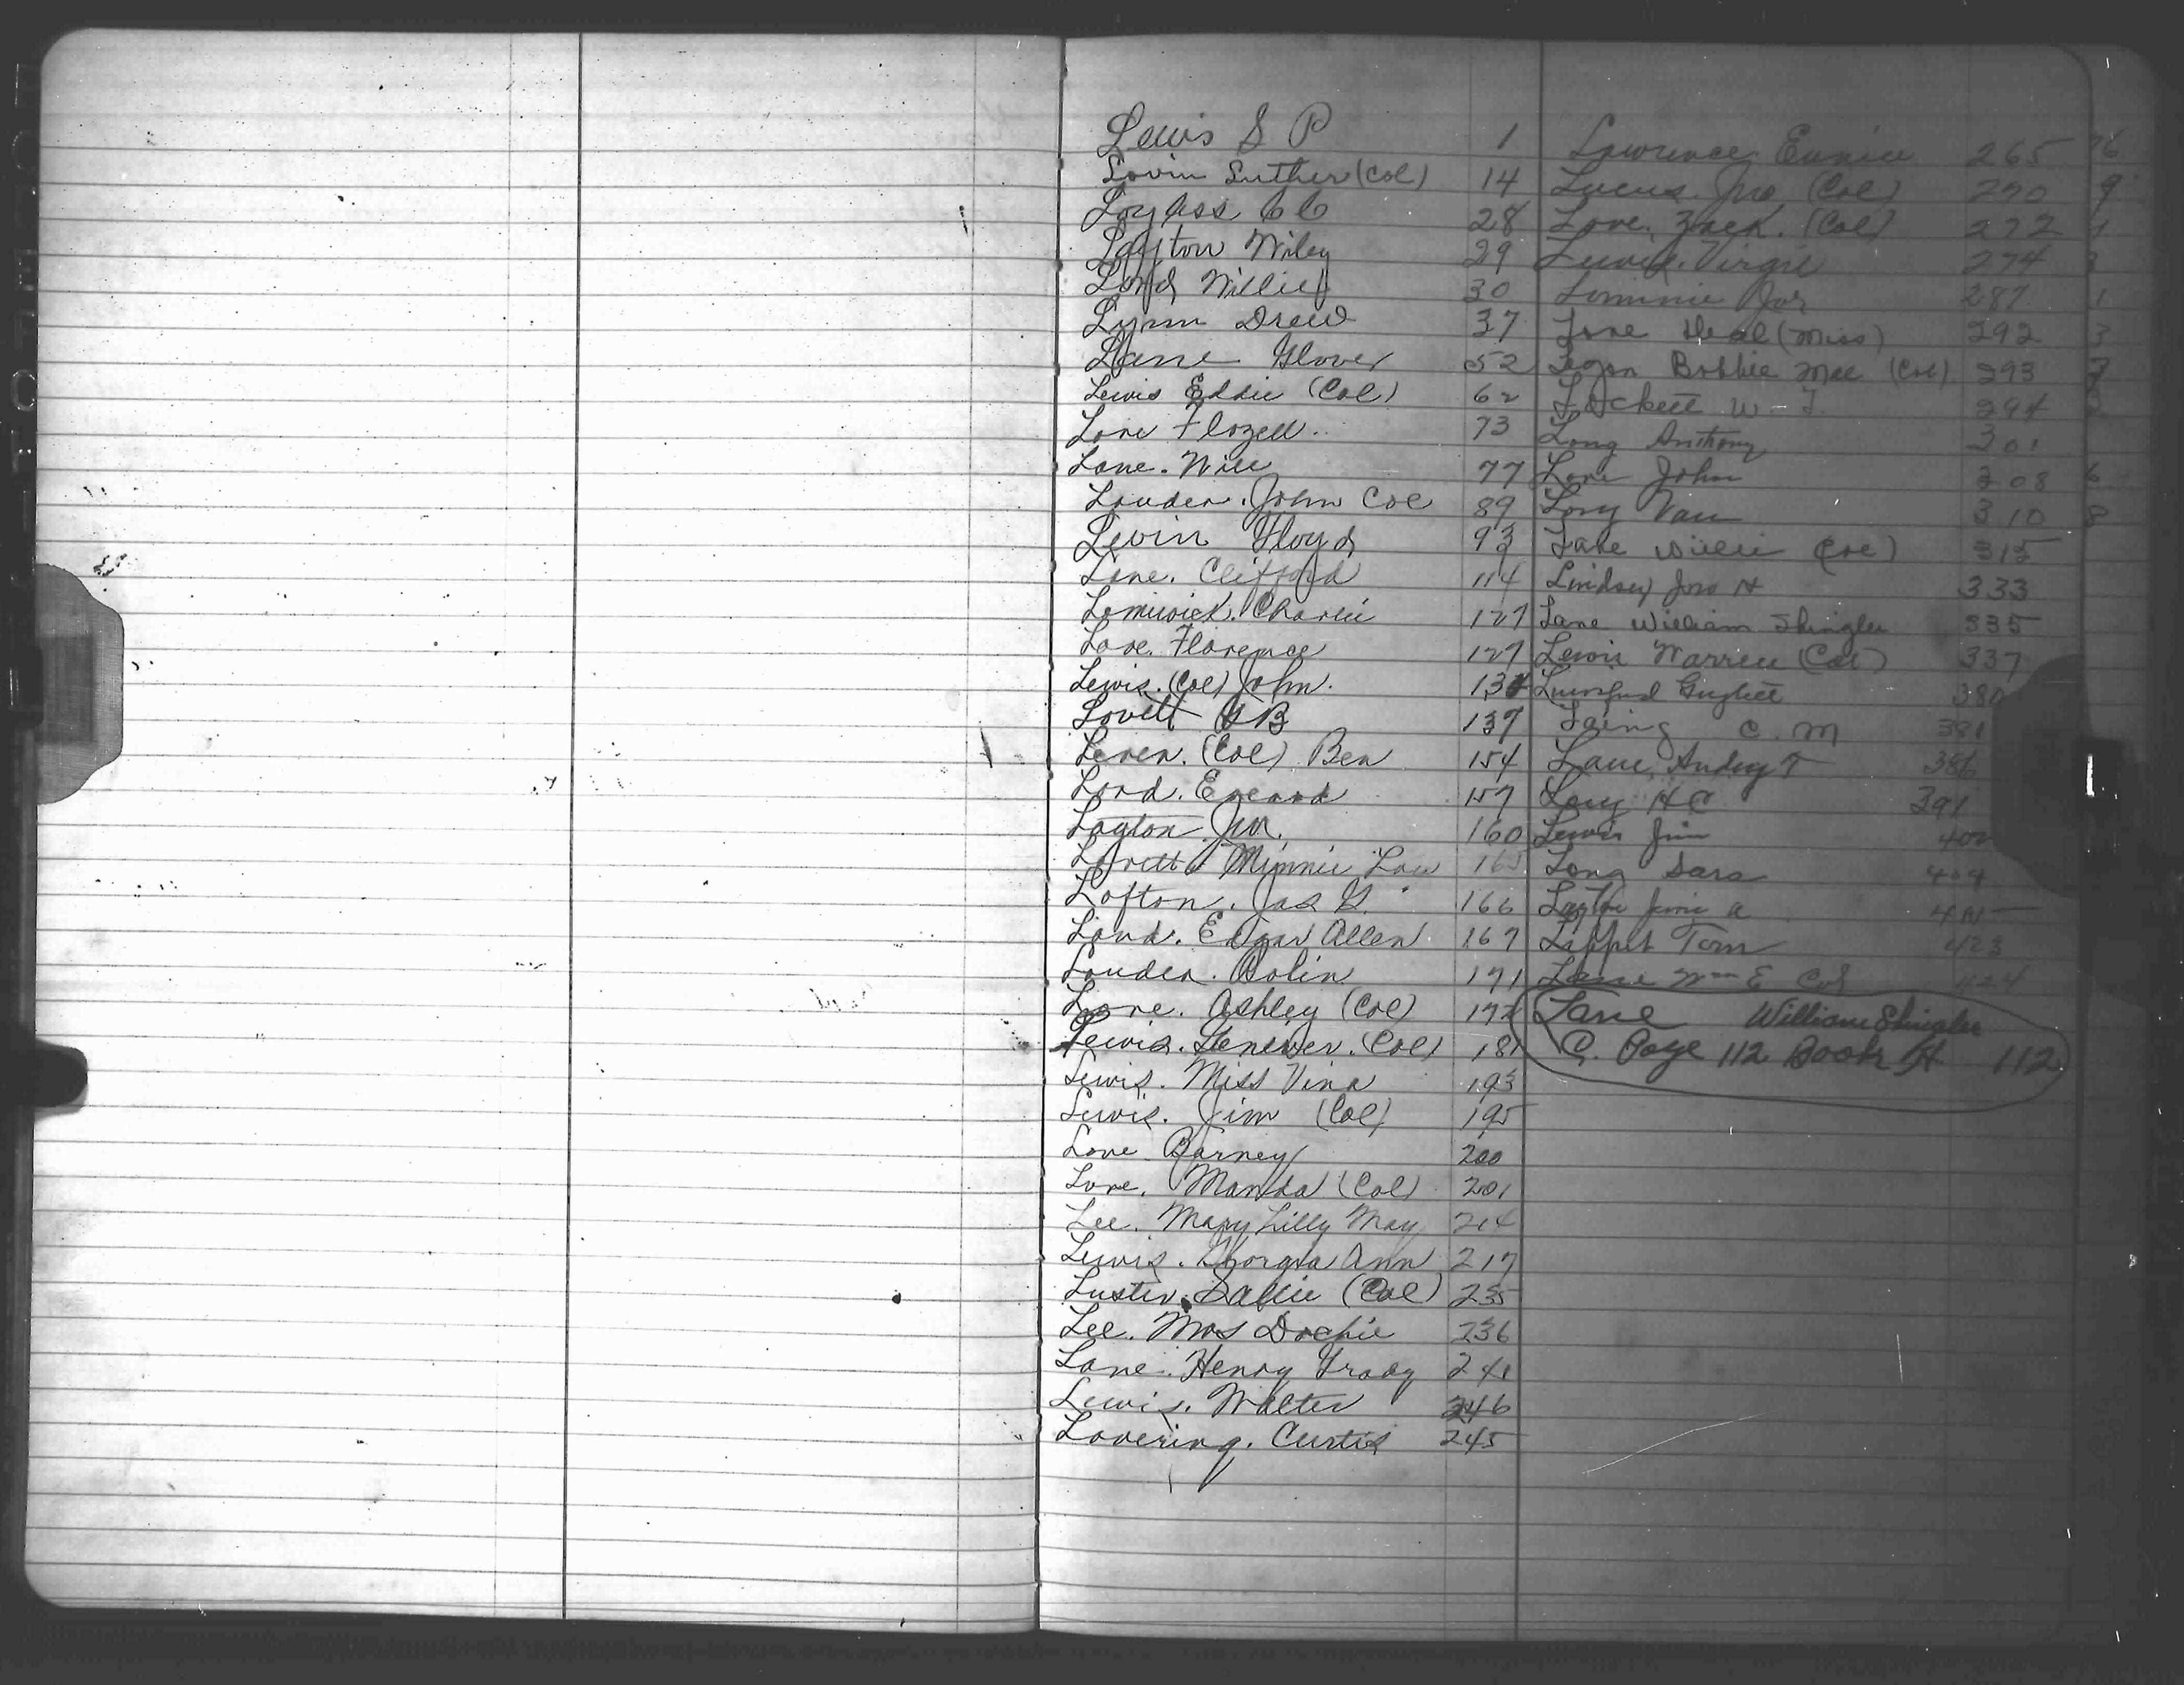 Lewis S P 1
Lovin Luther (Col) 14
Loylass C C 28
Layton Wiley 29
Lord Willie 30
Lynn Drew 37
Lane Glover 52
Lewis Eddie (Col) 62
Love Flozell 73
Lane. Will 77
Louder. John Col 89
Levin Floyd 93
Lane. Clifford 114
Lomiwick. Charlie 127
Love. Florence 127
Lewis. (Col) John. 134
Lovett B 137
Leven. (Col) Ben 154
Lord. 157
Layton Jno. 160
Lovett Minnie Lou 165
Lofton. Jas G. 166
Land. Edgar Allen 167
Louder. Colin 171
Love. Ashley (Col) 172
Lewis. (Col) 181
Lewis. Miss Vina 193
Lewis. Jim (Col) 195
Love Barney 200
Love. Manda (Col) 201
Lee. Mary Lilly May 214
Lewis. Georgia Ann 217
Luster. Sallie (Col) 235
Lee. Mrs Dochie 236
Lane. Henry Grady 241
Lewis. Walter 246
Lovering. Curtis 245
Lawrence Eunice 265
Lucus. Jno (Col) 270
Love. Zack. (Col) 272
Lewis. Virgil 274
Lominie Jos 287
Lane Heal (Miss) 292
Logan Bobbie Mae (Col) 293
Lockett W-T 294
Long Anthony 301
Love John 308
Long Van 310
Lane Willie (Col) 315
Lindsey Jno H 333
Lane William Shingler 335
Lewis Warren (Col) 337
Lunsford 380
Laing C. M 381
Lane Audry T 386
H C 391
Lewis Jim 400
Long Sara 404
Layton Jimie A
Lippit Tom 423
Lane Wm E Col 424
Lane William Shingler
C. Page 112 Book H 112